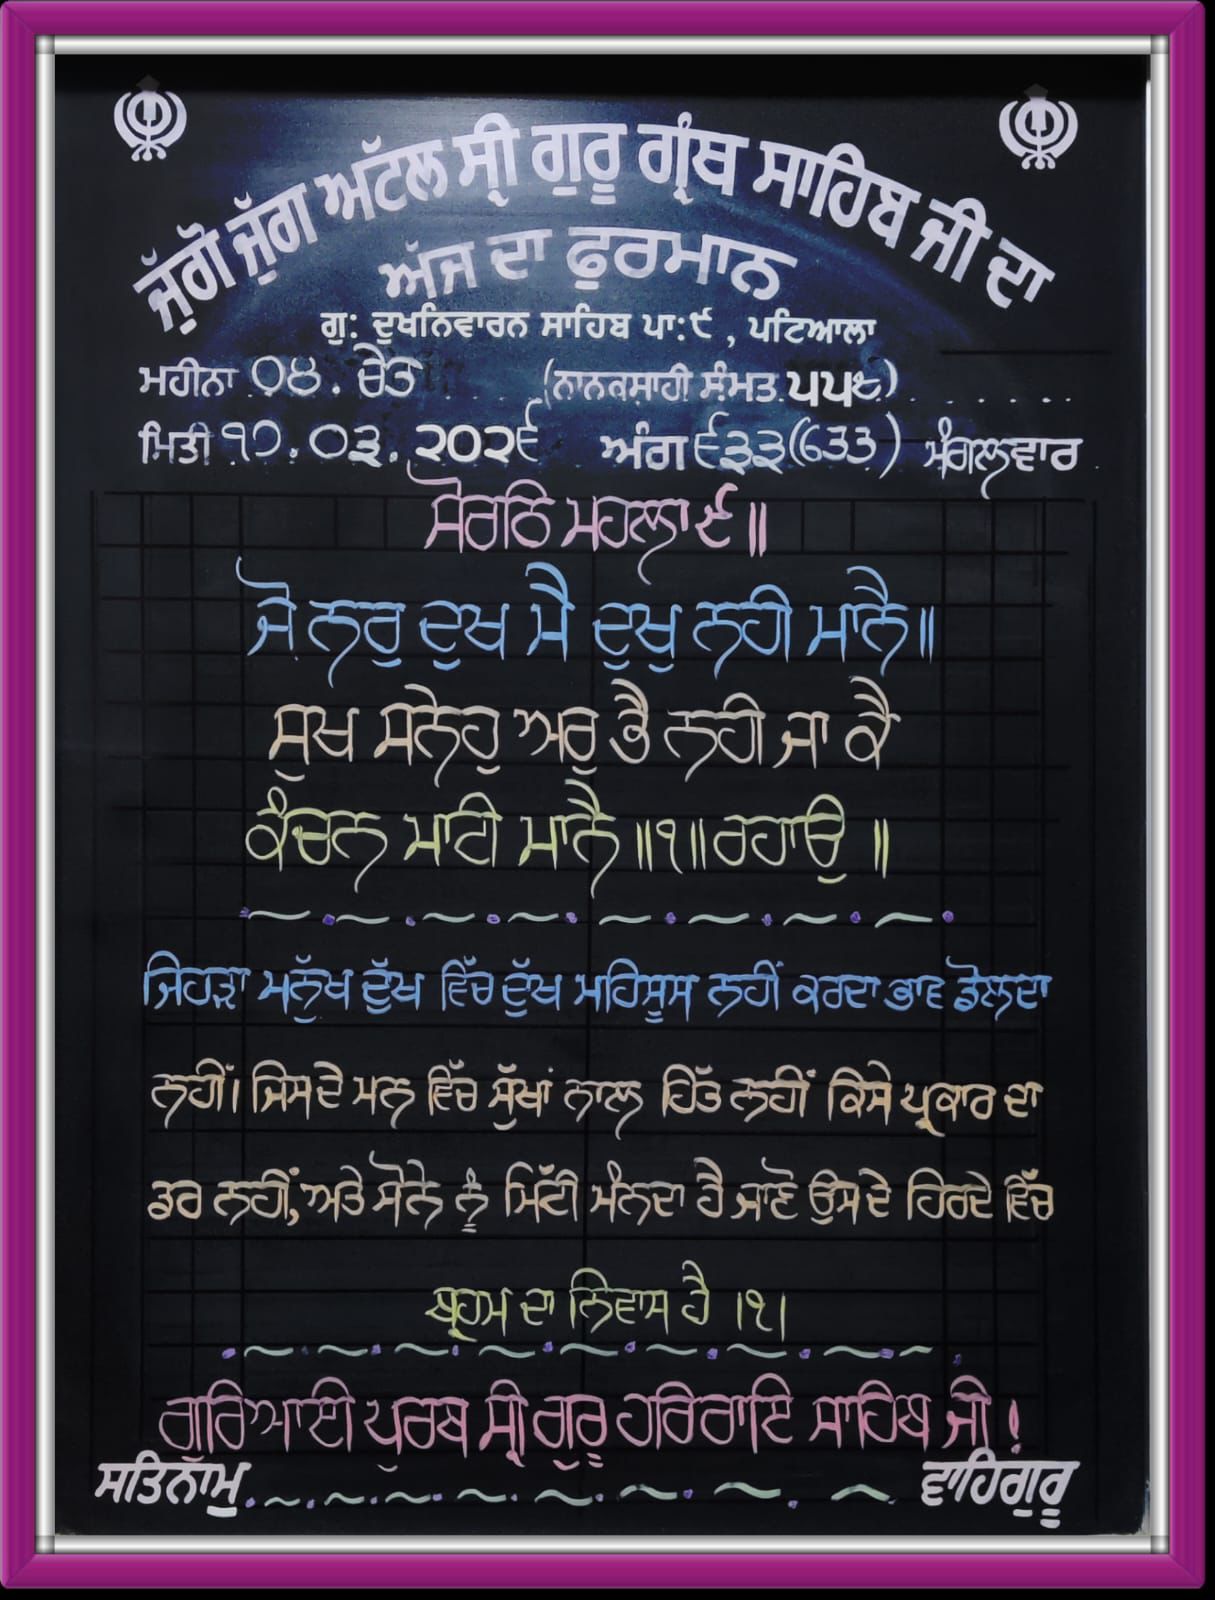 ਜੁੱਗੋ ਜੁੱਗ ਅਟੱਲ ਸ੍ਰੀ ਗੁਰੂ ਗ੍ਰੰਥ ਸਾਹਿਬ ਜੀ ਦਾ
ਅੱਜ ਦਾ ਫੁਰਮਾਨ
ਗੁ: ਦੁਖਨਿਵਾਰਨ ਸਾਹਿਬ ਪਾ:੯ , ਪਟਿਆਲਾ
ਮਹੀਨਾ ੦੪. ਚੇਤ (ਨਾਨਕਸ਼ਾਹੀ ਸੰਮਤ ੫੫੮)
ਮਿਤੀ ੧੭.੦੩.੨੦੨੬ ਅੰਗ ੬੩੩(633) ਮੰਗਲਵਾਰ
ਸੋਰਠਿ ਮਹਲਾ ੯॥
ਜੋ ਨਰੁ ਦੁਖ ਮੈ ਦੁਖੁ ਨਹੀ ਮਾਨੈ॥
ਸੁਖ ਸਨੇਹੁ ਅਰੁ ਭੈ ਨਹੀ ਜਾ ਕੈ
ਕੰਚਨ ਮਾਟੀ ਮਾਨੈ॥੧॥ਰਹਾਉ॥
ਜਿਹੜਾ ਮਨੁੱਖ ਦੁੱਖ ਵਿੱਚ ਦੁੱਖ ਮਹਿਸੂਸ ਨਹੀਂ ਕਰਦਾ ਭਾਵ ਡੋਲਦਾ
ਨਹੀਂ। ਜਿਸਦੇ ਮਨ ਵਿੱਚ ਸੁੱਖਾਂ ਨਾਲ ਹਿੱਤ ਨਹੀਂ ਕਿਸੇ ਪ੍ਰਕਾਰ ਦਾ
ਡਰ ਨਹੀਂ,ਅਤੇ ਸੋਨੇ ਨੂੰ ਮਿੱਟੀ ਮੰਨਦਾ ਹੈ ਜਾਣੋ ਉਸਦੇ ਹਿਰਦੇ ਵਿੱਚ
ਬ੍ਰਹਮ ਦਾ ਨਿਵਾਸ ਹੈ ।੧।
ਗੁਰਿਆਈ ਪੁਰਬ ਸ੍ਰੀ ਗੁਰੂ ਹਰਿਰਾਇ ਸਾਹਿਬ ਜੀ !
ਸਤਿਨਾਮੁ ਵਾਹਿਗੁਰੂ